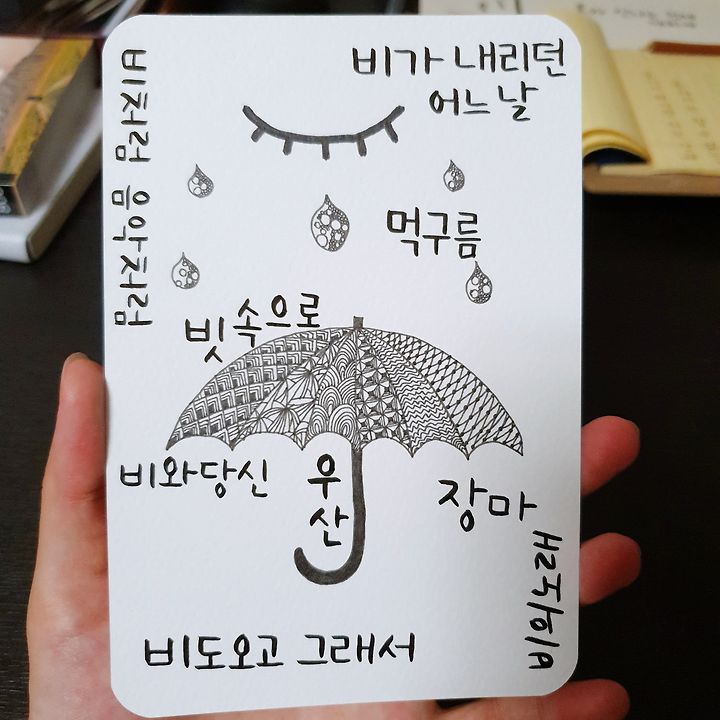 비가 내리던
어느 날
비처럼 음악처럼
먹구름
빗속으로
비와당신
우
산
장마
비도오고 그래서